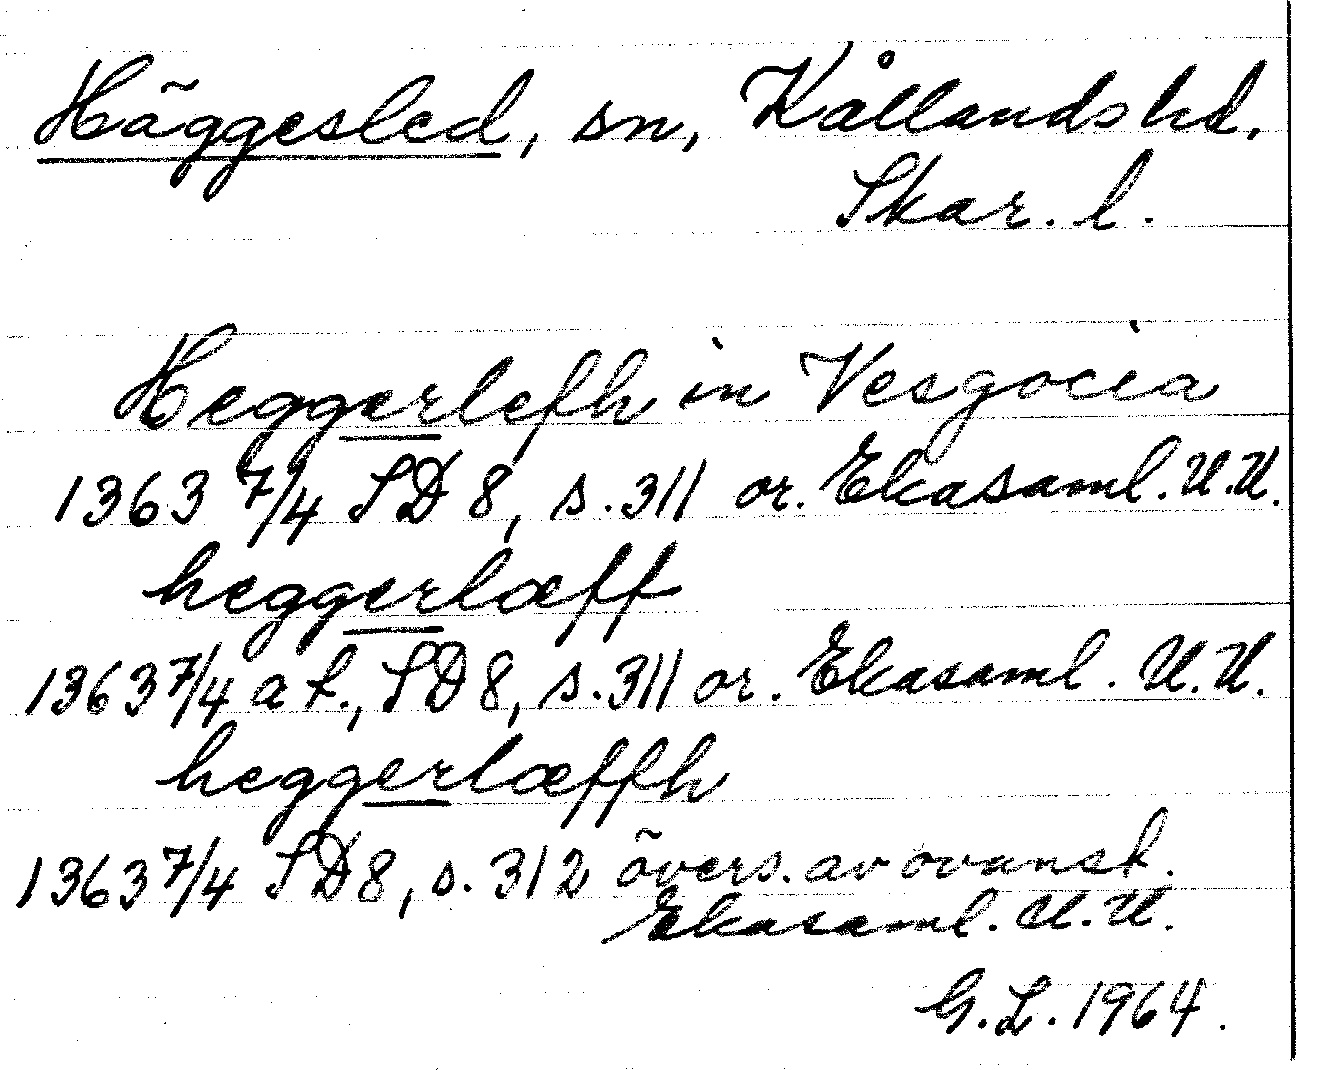 Häggesled, sn, Kållands hd.
Skar. l.
Heggerlefh in Vesgocia
1363 7/4 SD 8, s. 311 or. Ekasaml. U.U.
heggerlæff
1363 7/4 a t., SD 8, s. 311 or. Ekasaml. U.U.
heggerlæffh
1363 7/4 SD 8, s. 312 övers. av ovanst.
Ekasaml. U.U.
G.L. 1964.